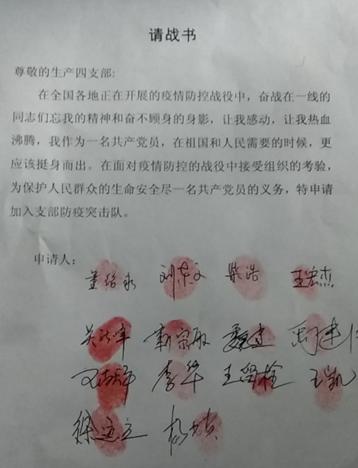 请战书
尊敬的生产四支部:
在全国各地正在开展的疫情防控战役中，奋战在一线的
同志们忘我的精神和奋不顾身的身影，让我感动，让我热血
沸腾，我作为一名共产党员，在祖国和人民需要的时候，更
应该挺身而出。在面对疫情防控的战役中接受组织的考验，
为保护人民群众的生命安全尽一名共产党员的义务，特申请
加入支部防疫突击队。
申请人：
王宏杰
李华 王凯